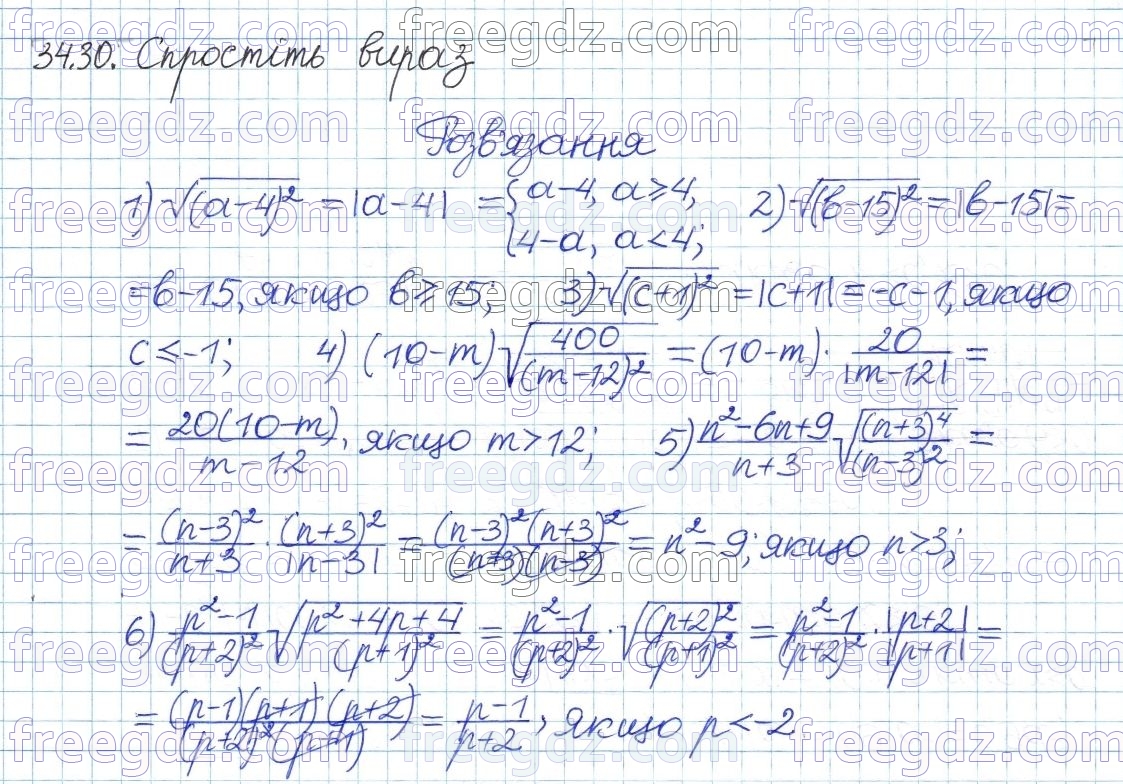 34.30. Спростіть вираз
Розв'язання
1) √(a-4)² = |a-4| = { a-4, a≥4, 4-a, a<4; 2) √(b-15)² = |b-15| =
= b-15, якщо b≥15; 3) √(c+1)² = |c+1| = -c-1, якщо
c≤-1; 4) (10-m)√(400/(m-12)²) = (10-m)·20/|m-12| =
= 20(10-m)/(m-12), якщо m>12; 5) (n²-6n+9)/(n+3) √((n+3)⁴/(n-3)²) =
= (n-3)²/(n+3) · (n+3)²/|n-3| = (n-3)²(n+3)²/((n+3)(n-3)) = n²-9, якщо n>3;
6) (p²-1)/(p+2)² √((p²+4p+4)/(p+1)²) = (p²-1)/(p+2)² · √((p+2)²/(p+1)²) = (p²-1)/(p+2)² · |p+2|/|p+1| =
= (p-1)(p+1)(p+2)/((p+2)²(p+1)) = (p-1)/(p+2), якщо p<-2
freegdz.com